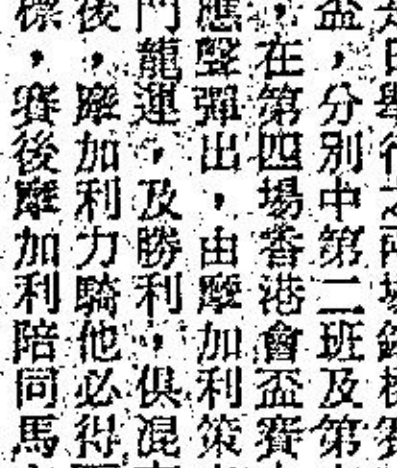 盃，分別中第二班及第
，在第四場香港會盃賽
應聲彈出，由摩加利策
門龍運，及勝利，俱混
後，摩加利力騎他必得
標，賽後摩加利陪同馬